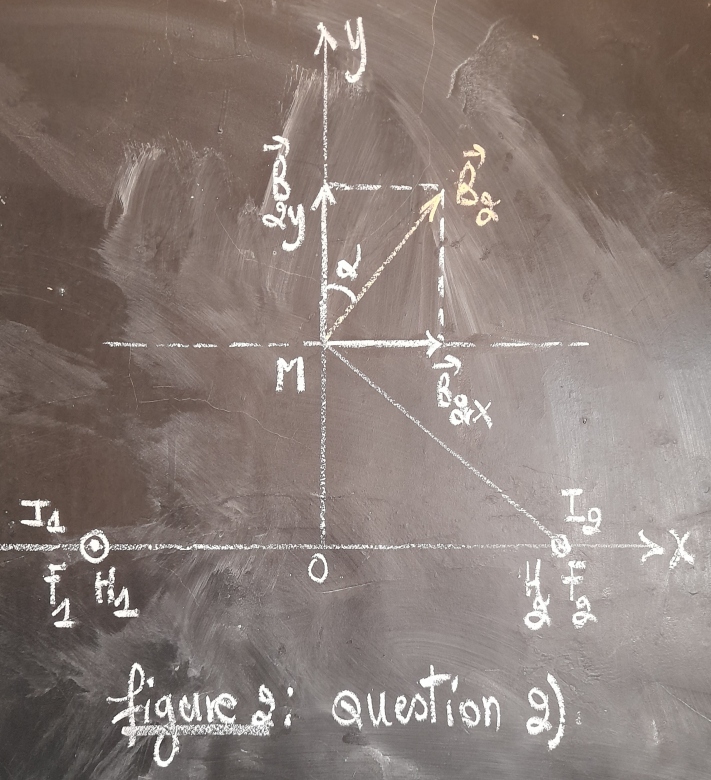 y
B⃗2y
B⃗2
α
M
B⃗2x
I1
I2
x
F1 H1
O
H2 F2
figure 2: Question 2)